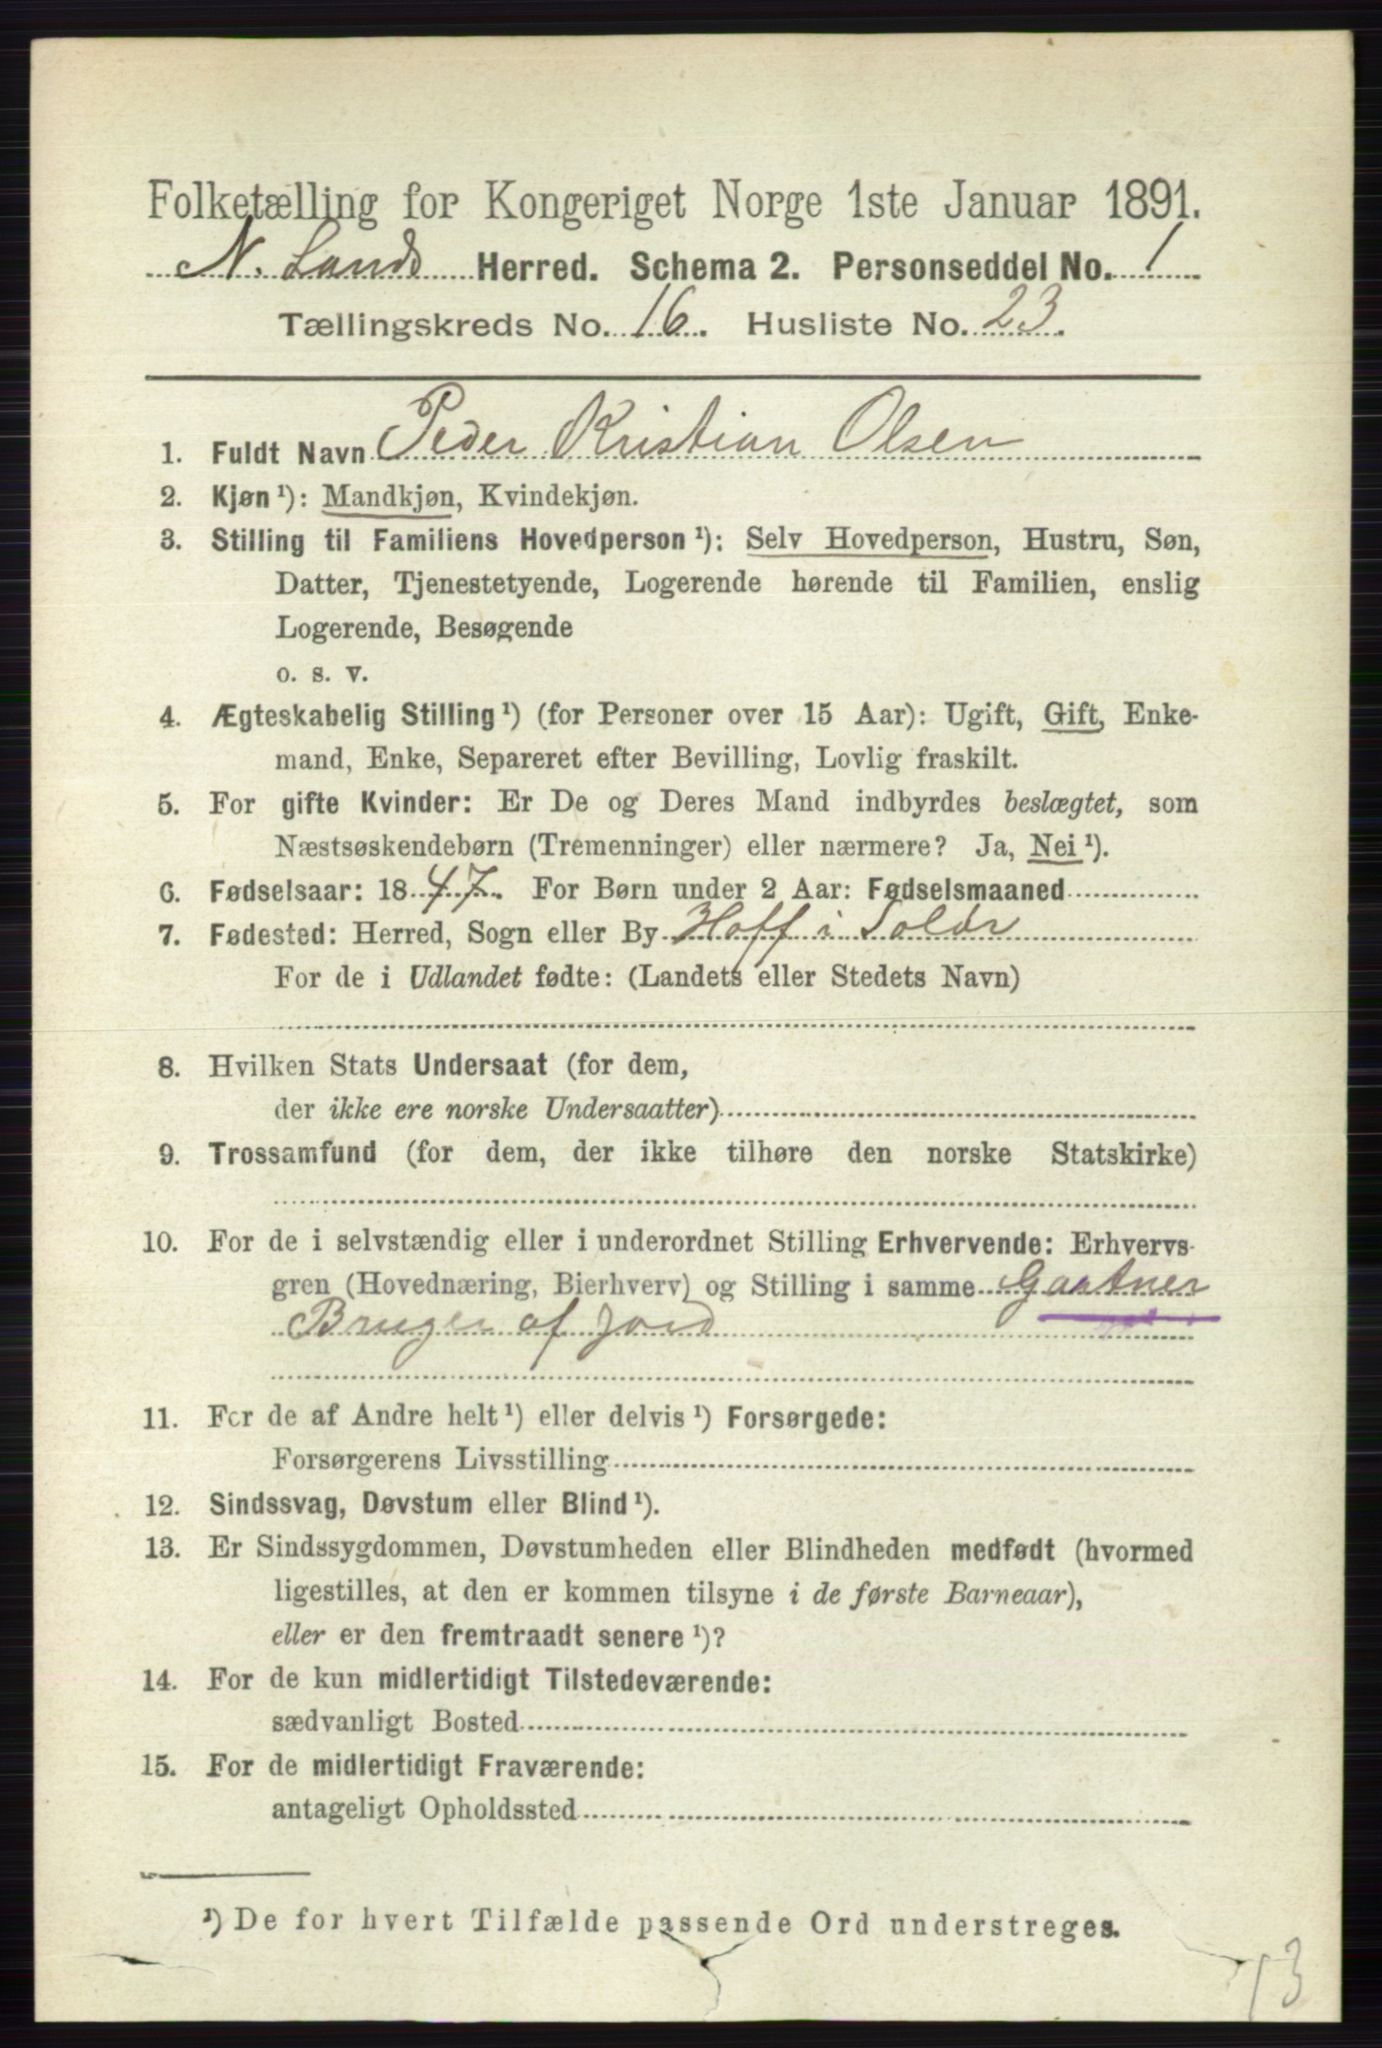 Folketælling for Kongeriget Norge 1ste Januar 1891.
N. Lands Herred. Schema 2. Personseddel No. 1
Tællingskreds No. 16. Husliste No. 23.
1. Fuldt Navn Peder Kristian Olsen
2. Kjøn ¹): Mandkjøn, Kvindekjøn.
3. Stilling til Familiens Hovedperson ¹): Selv Hovedperson, Hustru, Søn,
Datter, Tjenestetyende, Logerende hørende til Familien, enslig
Logerende, Besøgende
o. s. v.
4. Ægteskabelig Stilling ¹) (for Personer over 15 Aar): Ugift, Gift, Enke-
mand, Enke, Separeret efter Bevilling, Lovlig fraskilt.
5. For gifte Kvinder: Er De og Deres Mand indbyrdes beslægtet, som
Næstsøskendebørn (Tremenninger) eller nærmere? Ja, Nei ¹).
6. Fødselsaar: 1847. For Børn under 2 Aar: Fødselsmaaned
7. Fødested: Herred, Sogn eller By Hoff i Solør
For de i Udlandet fødte: (Landets eller Stedets Navn)
8. Hvilken Stats Undersaat (for dem,
der ikke ere norske Undersaatter)
9. Trossamfund (for dem, der ikke tilhøre den norske Statskirke)
10. For de i selvstændig eller i underordnet Stilling Erhvervende: Erhvervs-
gren (Hovednæring, Bierhverv) og Stilling i samme Gaatner
Bruger af Jord
11. For de af Andre helt ¹) eller delvis ¹) Forsørgede:
Forsørgerens Livsstilling
12. Sindssvag, Døvstum eller Blind ¹).
13. Er Sindssygdommen, Døvstumheden eller Blindheden medfødt (hvormed
ligestilles, at den er kommen tilsyne i de første Barneaar),
eller er den fremtraadt senere ¹)?
14. For de kun midlertidigt Tilstedeværende:
sædvanligt Bosted
15. For de midlertidigt Fraværende:
antageligt Opholdssted
¹) De for hvert Tilfælde passende Ord understreges.
13